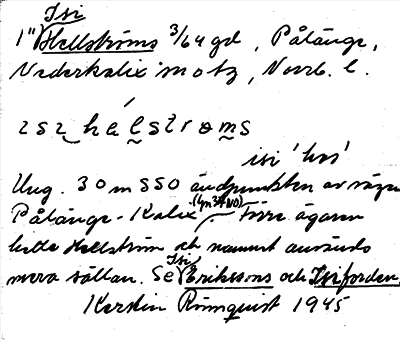 Isi
1" Hellströms 3/64 gd, Pålänge,
Nederkalix motg, Norrb. l.
ɪsɪ hélstroms
isi 'hos'
Ung. 30 m SSO ändpunkten av vägen
Pålänge-Kalix. (Gn 34 NO) Förre ägaren
hette Hellström och namnet används
mera sällan. Se Isi Erikssons och Isiforden.
Kerstin Rönnquist 1945